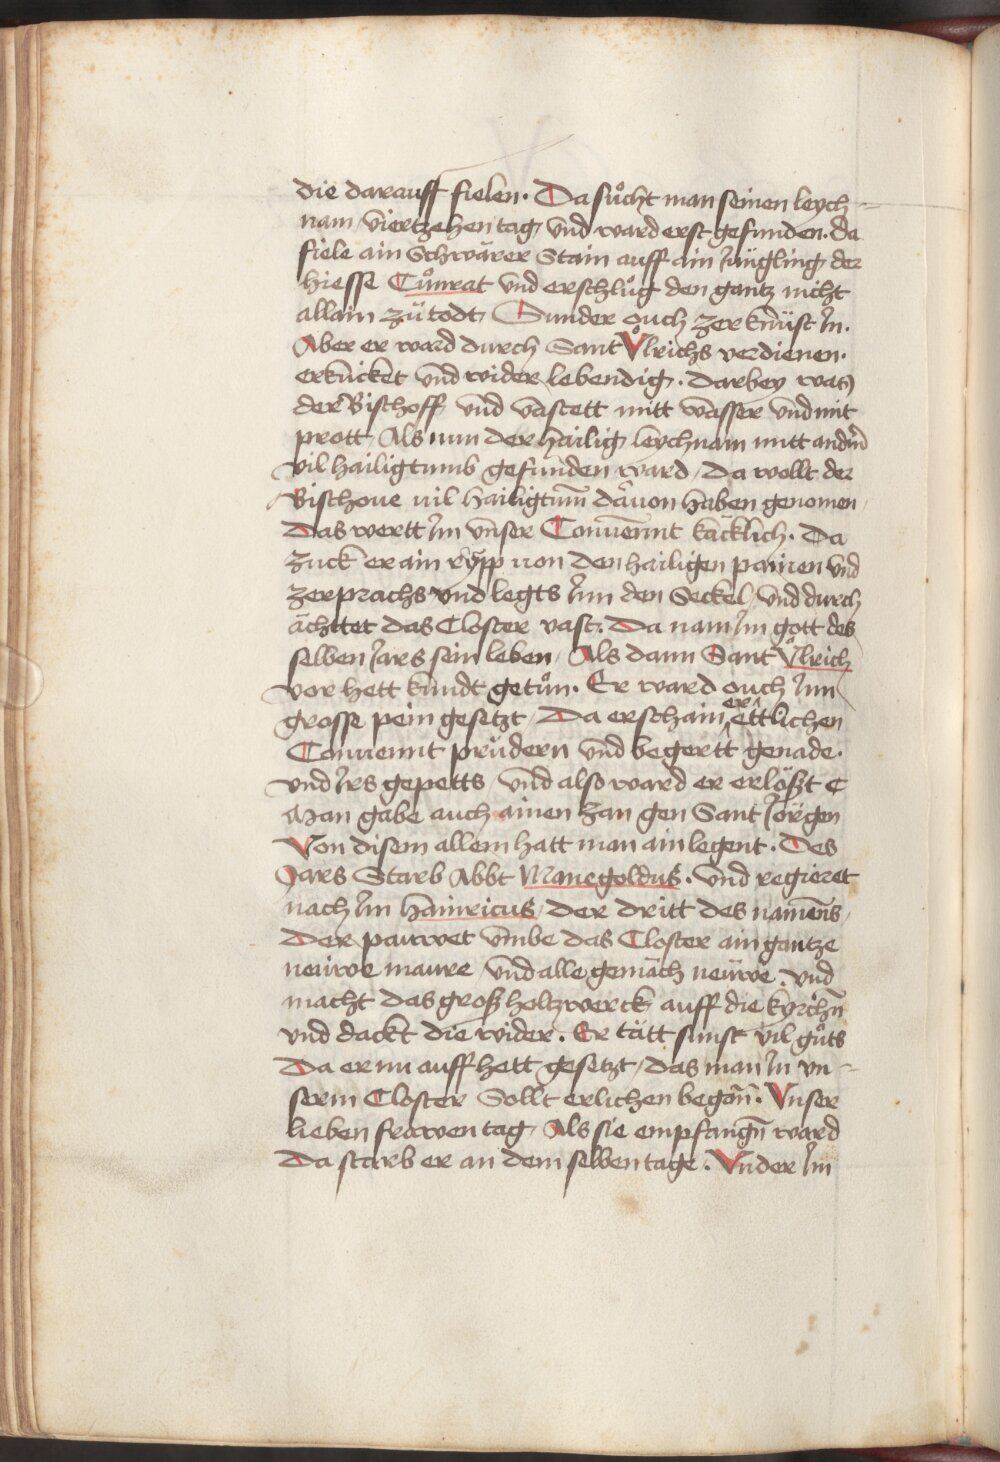 die darauff fielen. Da sůcht man seinen leych-
nam viertzehen tag vnd ward erst gefunden. da
fiele ain Schwärer Stain auff ain Jüngling der
hiesse Cůnrat vnd erschlůg den gantz nicht
allain zů todt, Sunder ouch zerknüst In.
Aber er ward durch Sant Ůlrichs verdienen.
erkücket vnd wider lebendig. Darbey was
der Bischoff, vnd vastett mitt wasser vnd mit
prott, Als nun der hailig leychnam mitt andern̄
vil hailigtumb gefunden ward, Da wollt der
Bischoue uil hailigtum̄ dauon haben genomen,
Das wertt Im vnser Conuennt käcklich. Da
zuck er ain rypp von den hailigen painen vnd
zerprachs vnd legts Inn den Seckel, vnd durch
ächttet das Closter vast. Da nam Im gott des
selben Jars sein leben, Als dann Sant Ůlrich
vor hett kundt getůn. Er ward ouch Inn
grosse pein gesetzt, Da erschain er ettlichen
Conuennt prüdern vnd begertt genade.
vnd Irs gepetts, vnd also ward er erlößt C
Man gabe auch ainen zan gen Sant Jörgen
Von disem allem hatt man ain legent. Des
Jars Starb Abbt Manegoldus. vnd regieret
nach Im hainricus, der dritt des namens,
Der pauwet vmbe das Closter ain gantze
neuwe maure vnd alle gemäch neüwe. vnd
macht das groß holtzwerck auff die kyrchn̄
vnd dackt die wider. Er tätt sunst vil gůts
Da er nu auff hett gesetzt, das man In vn-
serm Closter Sollt erlichen begon̄. Vnser
lieben frawen tag, Als sie empfangn̄ ward
Da starb er an dem selben tage. Vnder Im